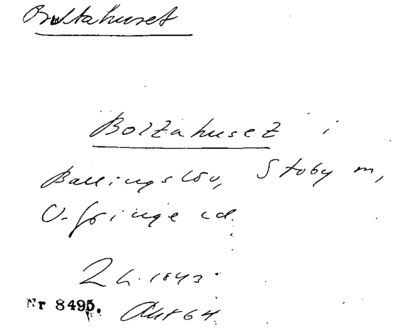 Boltahuset
Boltahuset i
Ballingslöv, Stoby sn,
V. Göinge hd.
1843.
Nr 8495. Akt 64.